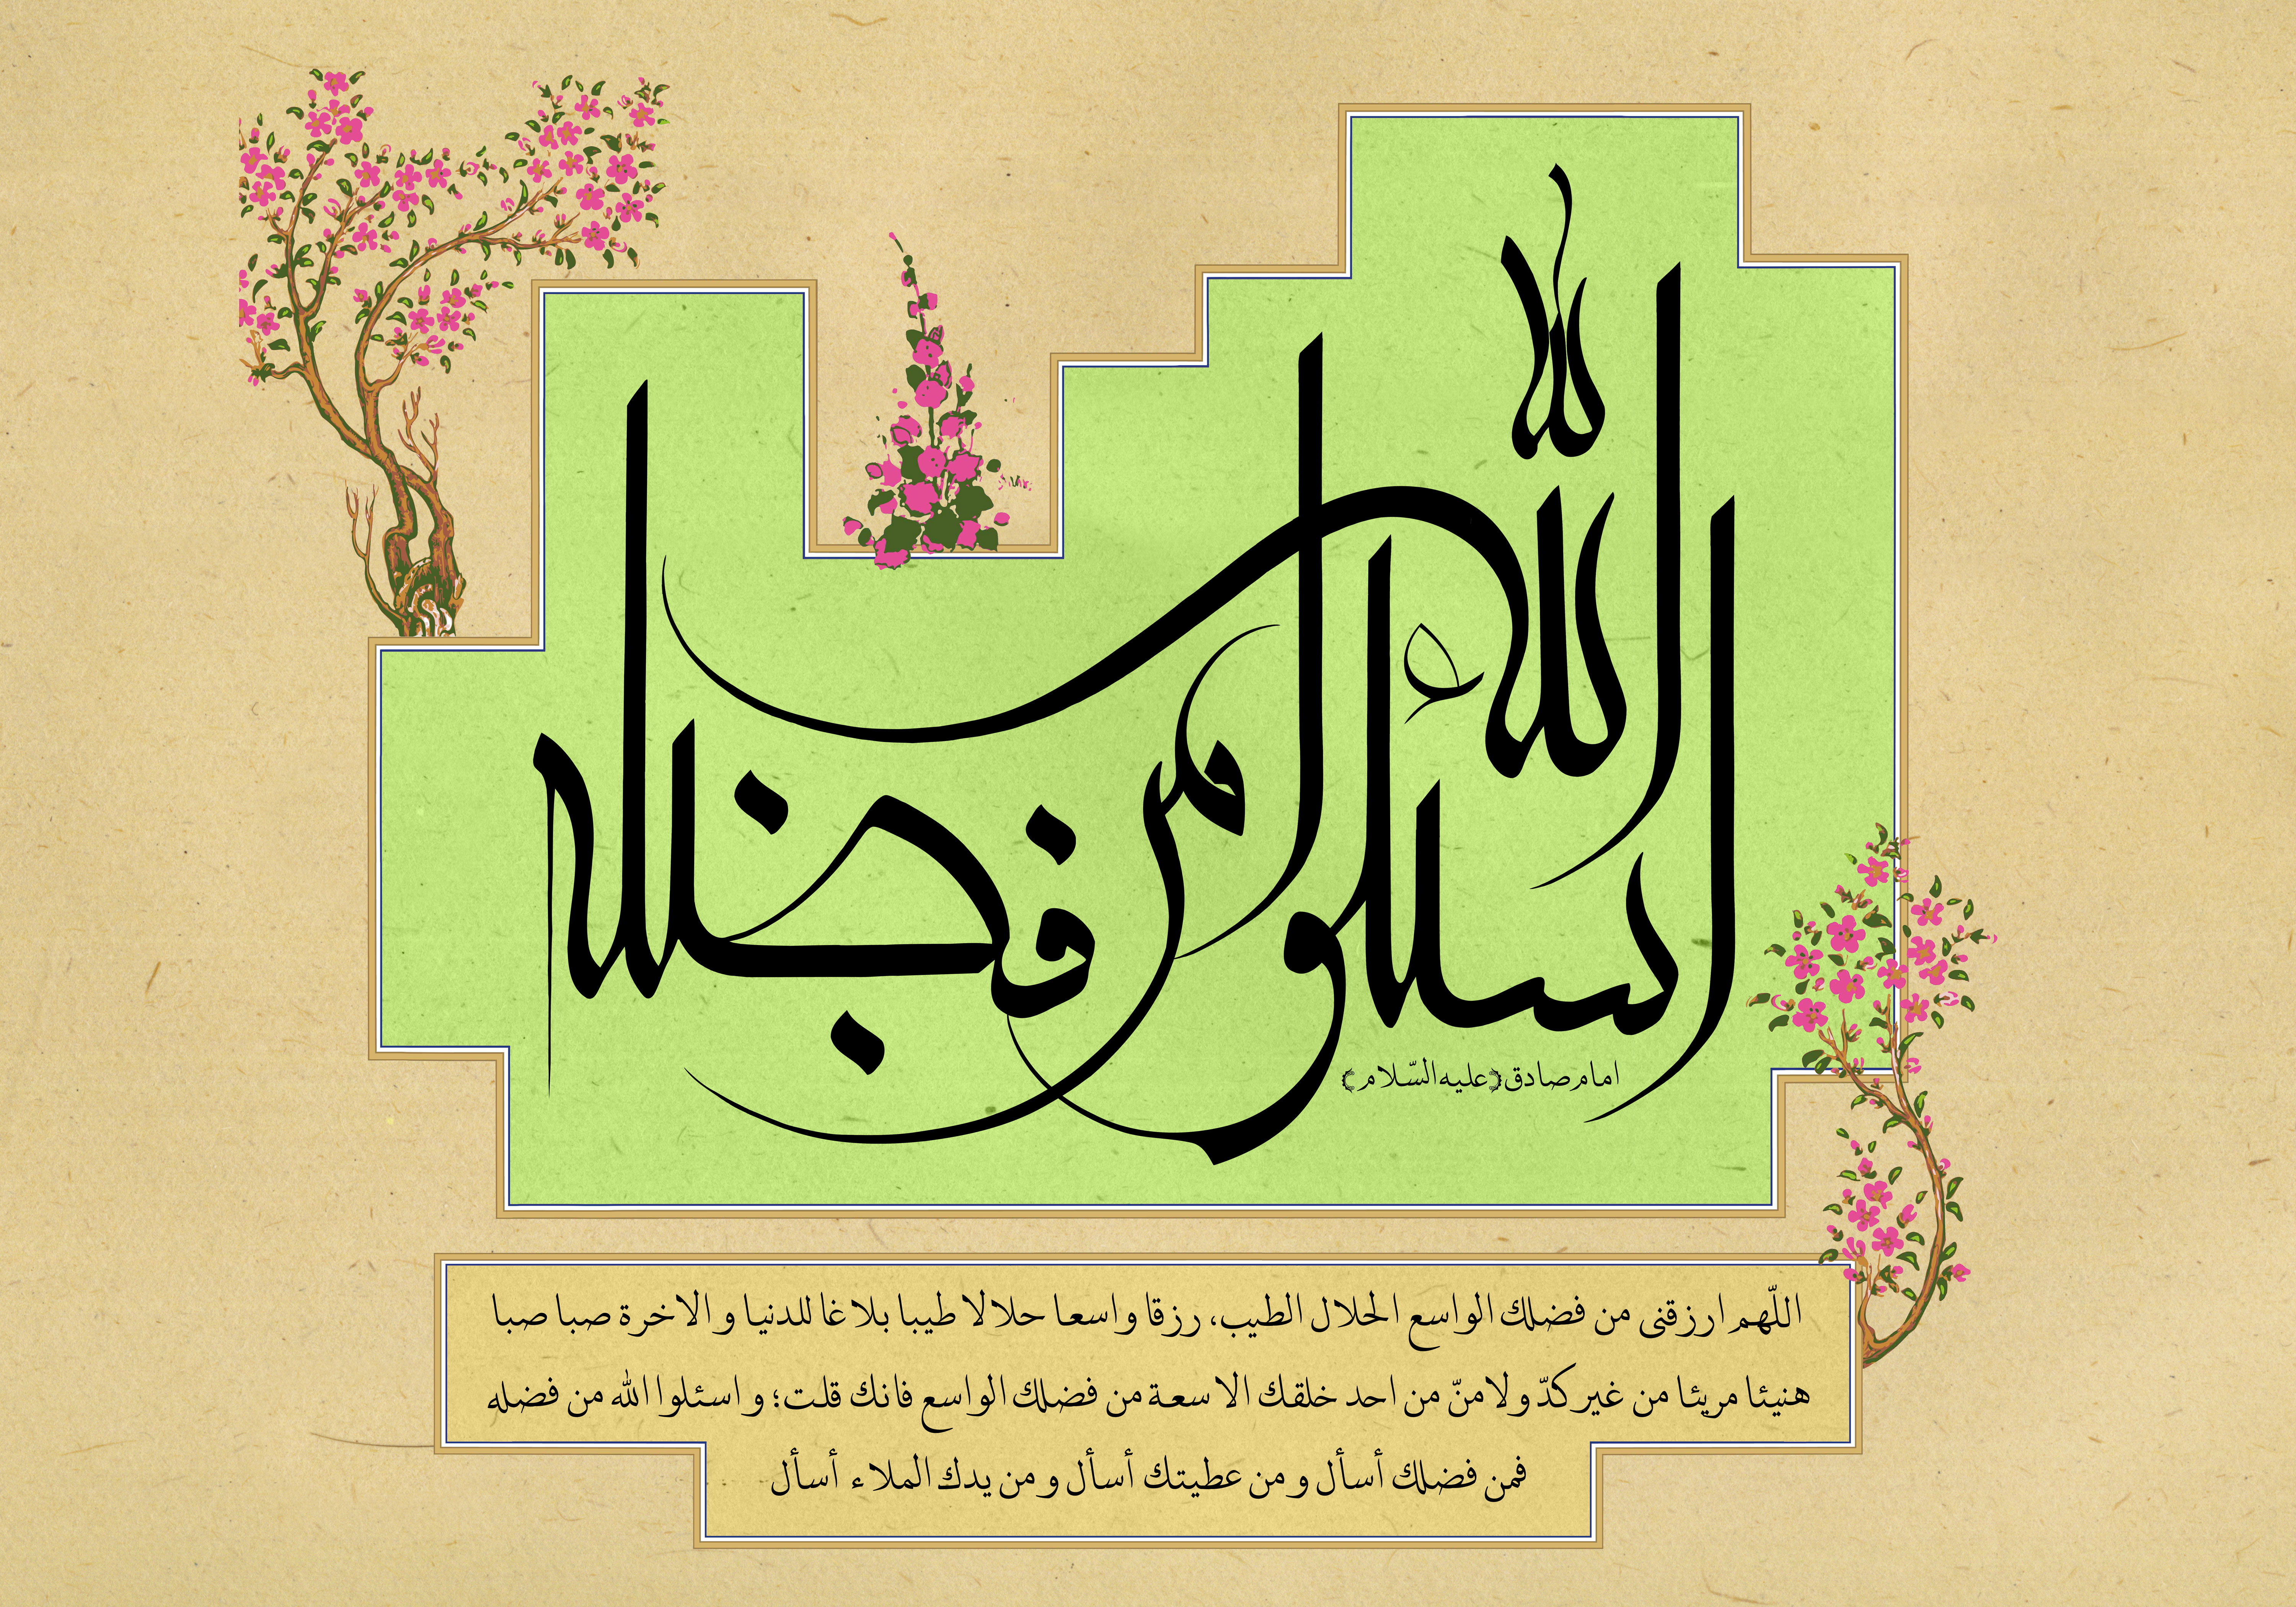 اسئلوا الله من فضله
امام صادق (علیه السّلام)
اللّهم ارزقنی من فضلك الواسع الحلال الطیب، رزقا واسعا حلالا طیبا بلاغا للدنیا و الاخرة صبا صبا
هنیئا مریئا من غیر كدّ و لا منّ من احد خلقك الا سعة من فضلك الواسع فانك قلت؛ و اسئلوا الله من فضله
فمن فضلك أسأل و من عطیتك أسأل و من یدك الملاء أسأل